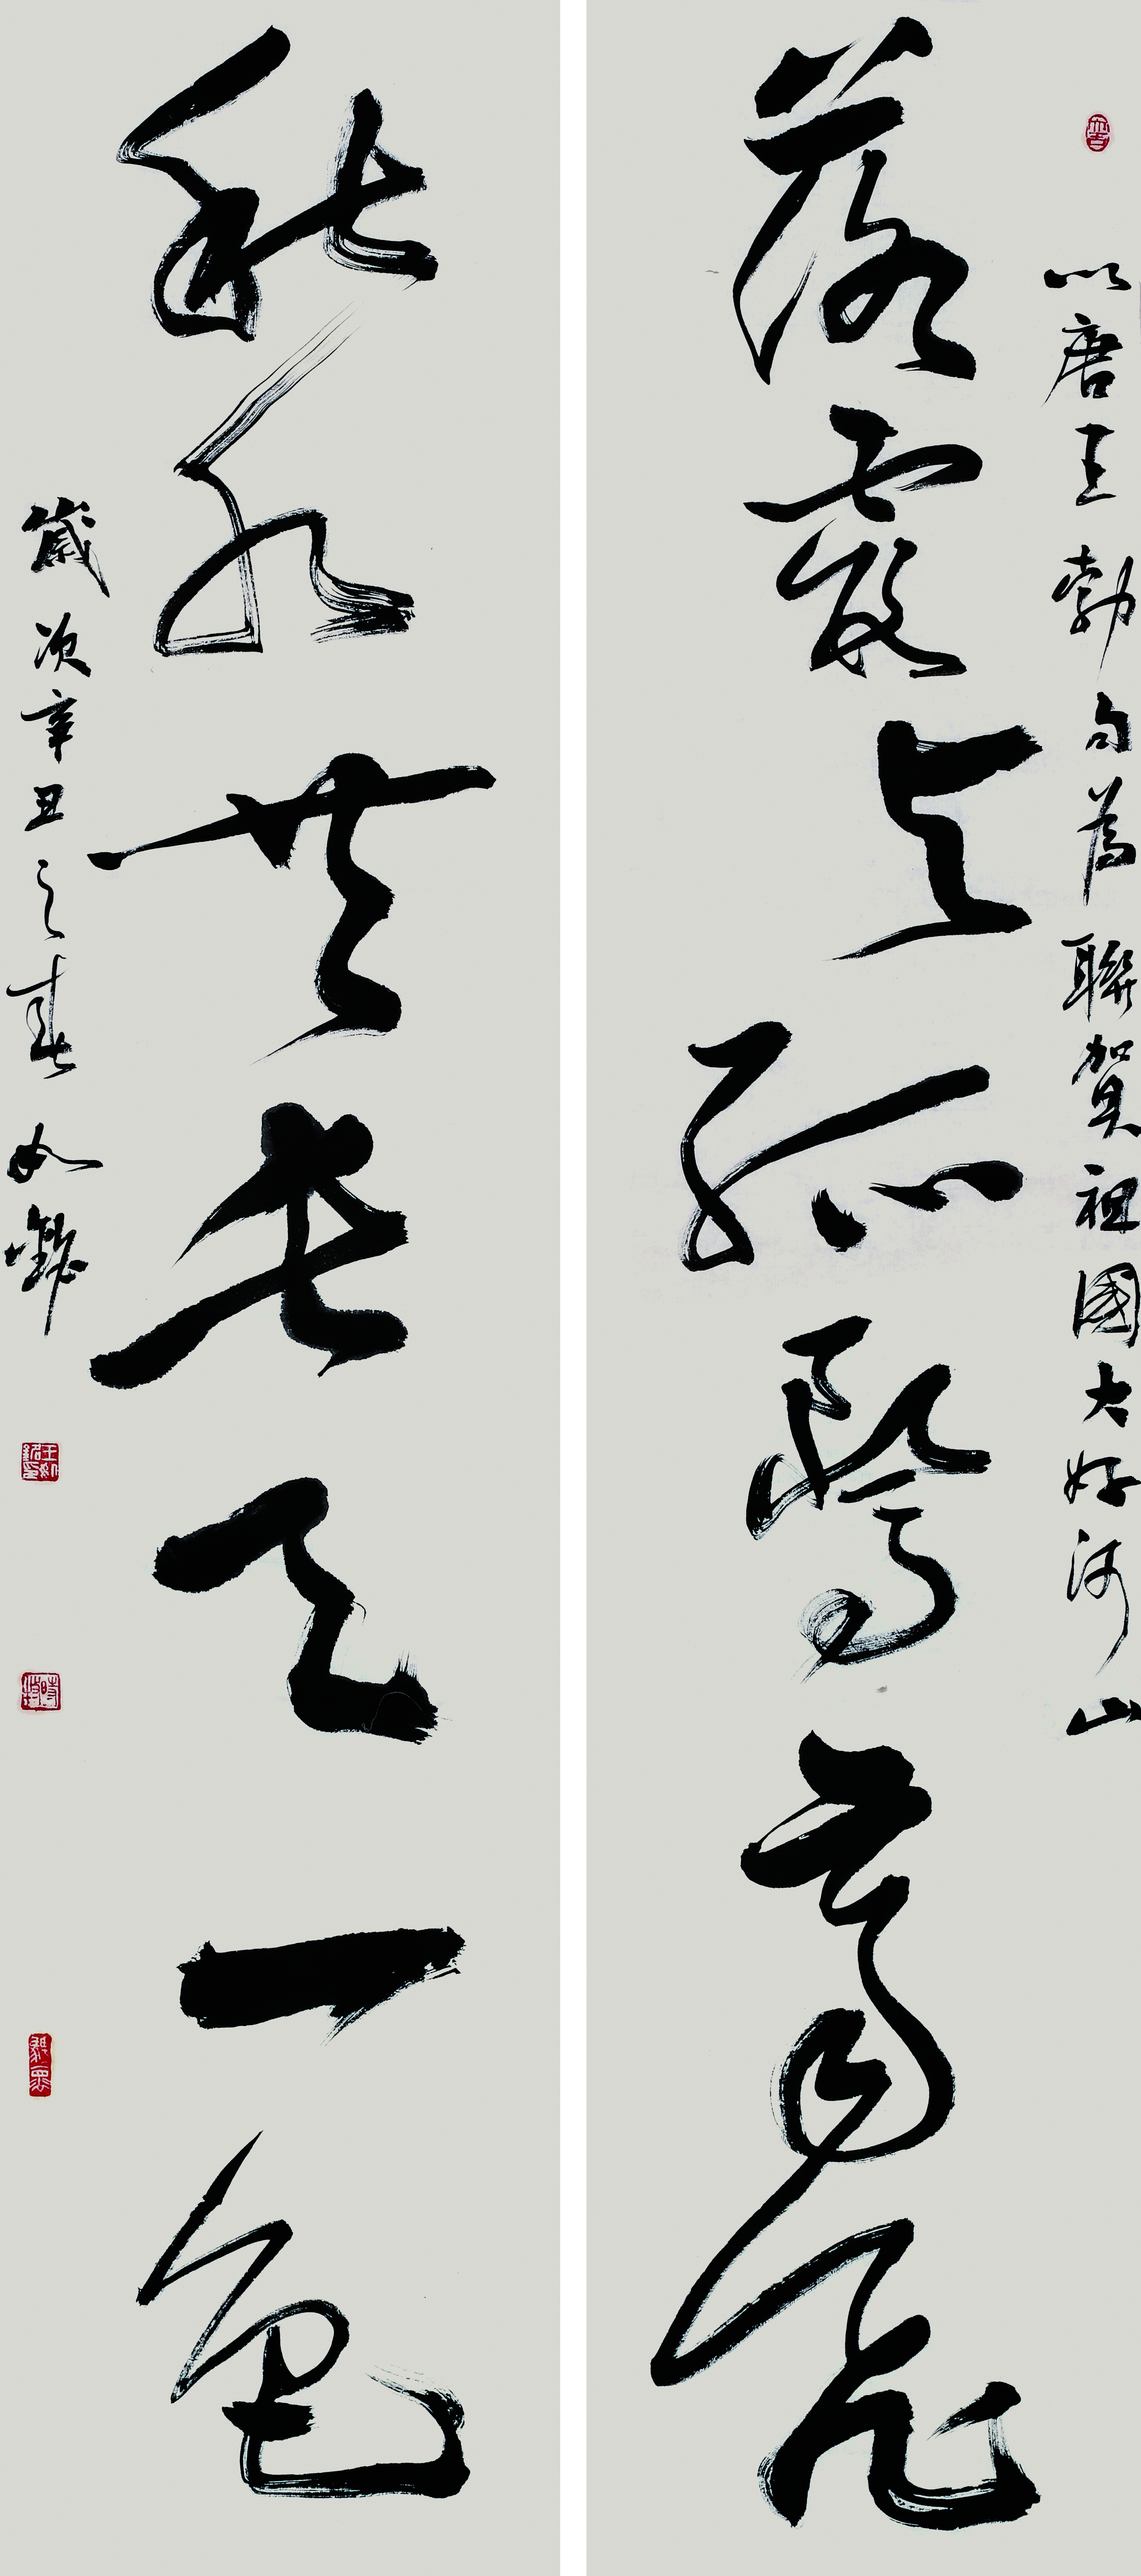 以唐王勃句為聯賀祖國大好河山
落霞与孤鶩齊飛
秋水共長天一色
歲次辛丑之春 如